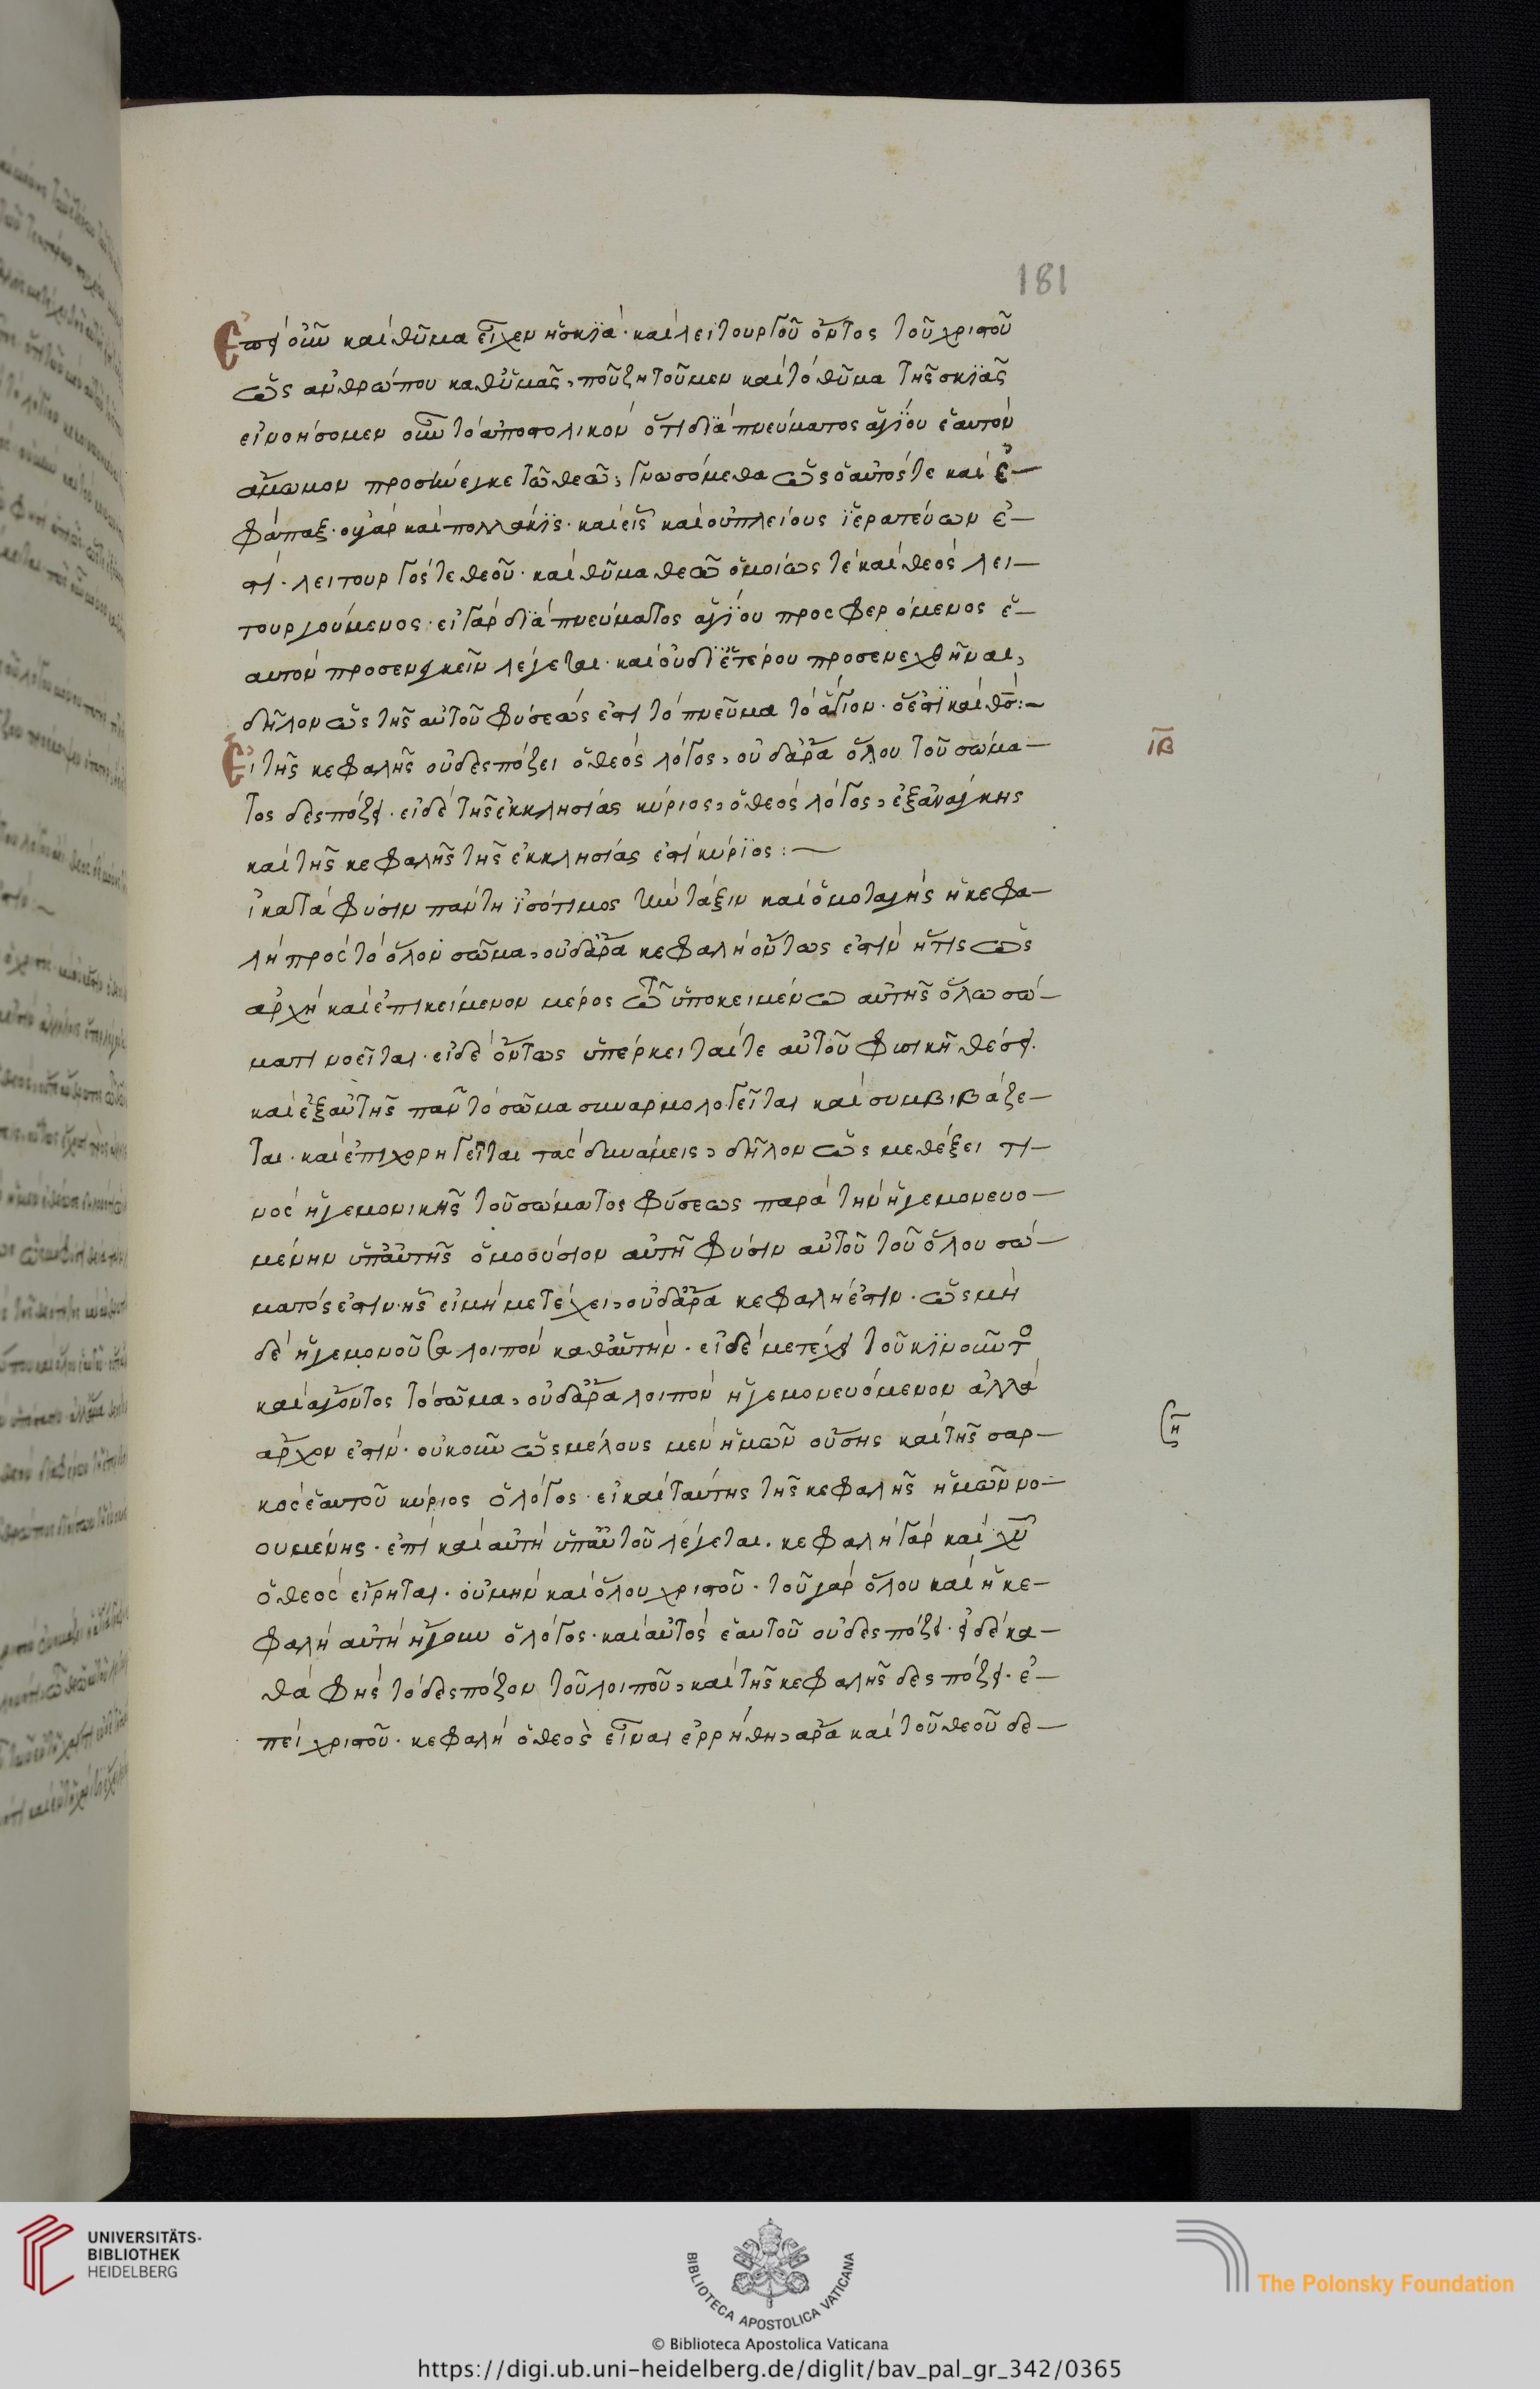 181
Ἐπεὶ οὖν καὶ θῦμα εἶχεν ἡ σκϊά · καὶ λειτουργοῦ ὄντος τοῦ χριστοῦ
ὡς ἀνθρώπου καθ' ὑμᾶς, ποῦ ζητοῦμεν καὶ τὸ θῦμα τῆς σκϊᾶς
εἰ νοήσομεν οὖν τὸ ἀποστολικὸν ὅτι δϊὰ πνεύματος ἁγίου ἑαυτὸν
ἄμωμον προσήνεγκε τῶ θεῶ, γνωσόμεθα ὡς ὁ αὐτός τε καὶ ἐ–
φάπαξ · οὐ γὰρ καὶ πολλάκϊς · καὶ εἷς καὶ οὐ πλείους ἱερατεύων ἐ–
στὶ · λειτουργός τε θεοῦ · καὶ θῦμα θεῶ ὁμοίως τὲ καὶ θεὸς λει–
τουργούμενος · εἰ γὰρ δϊὰ πνεύματος ἁγίου προσφερόμενος ἑ–
αυτὸν προσενεγκεῖν λέγεται · καὶ οὐ δι' ἑτέρου προσενεχθῆναι,
δῆλον ὡς τῆς αὐτοῦ φύσεώς ἐστι τὸ πνεῦμα τὸ ἅγιον · ὅ ἐστϊ καὶ θσ:~
Εἰ τῆς κεφαλῆς οὐ δεσπόζει ὁ θεὸς λόγος, οὐδ' ἄρα ὅλου τοῦ σώμα–
τος δεσπόζει · εἰ δὲ τῆς ἐκκλησίας κύριος, ὁ θεὸς λόγος, ἐξ ἀνάγκης
καὶ τῆς κεφαλῆς τῆς ἐκκλησίας ἐστὶ κύρϊος :~
ἰ κατὰ φύσιν πάντη ἰσότιμος τὴν τάξιν καὶ ὁμοταγὴς ἡ κεφα–
λὴ πρὸς τὸ ὅλον σῶμα, οὐδ' ἄρα κεφαλὴ ὄντως ἐστὶν ἥτις ὡς
ἀρχὴ καὶ ἐπικείμενον μέρος τῶ ὑποκειμένω αὐτῆς ὅλω σώ–
ματι νοεῖται · εἰ δὲ ὄντως ὑπέρκειταί τε αὐτοῦ φυσικῆ θέσει ·
καὶ ἐξ αὐτῆς πᾶν τὸ σῶμα συναρμολογεῖται καὶ συμβιβάζε–
ται · καὶ ἐπιχορηγεῖται τὰς δυνάμεις, δῆλον ὡς μεθέξει τι–
νὸς ἡγεμονικῆς τοῦ σώματος φύσεως παρὰ τὴν ἡγεμονευο–
μένην ὑπ' αὐτῆς ὁμοούσιον αὐτῆ φύσιν αὐτοῦ τοῦ ὅλου σώ–
ματός ἐστιν · ἧς εἰ μὴ μετέχει, οὐδ' ἄρα κεφαλή ἐστιν · ὡς μη
δὲ ἡγεμονοῦσα λοιπὸν καθ' αὑτήν · εἰ δὲ μετέχει τοῦ κϊνοῦντο
καὶ ἄγοντος τὸ σῶμα, οὐδ' ἄρα λοιπὸν ἡγεμονευόμενον ἀλλὰ
ἄρχον ἐστίν · οὐκοῦν ὡς μέλους μὲν ἡμῶν οὔσης καὶ τῆς σαρ–
κὸς ἑαυτοῦ κύριος ὁ λόγος · εἰ καὶ ταύτης τῆς κεφαλῆς ἡμῶν νο–
ουμένης · ἐπὶ καὶ αὐτὴ ὑπ' αὐτοῦ λέγεται. κεφαλὴ γὰρ καὶ χυ
ὁ θεὸς εἴρηται · οὐ μὴν καὶ ὅλου χριστοῦ · τοῦ γὰρ ὅλου καὶ ἡ κε–
φαλὴ αὐτὴ ἤγουν ὁ λόγος · καὶ αὐτὸς ἑαυτοῦ οὐ δεσπόζει · εἰ δὲ κα–
θὰ φῂς τὸ δεσπόζον τοῦ λοιποῦ, καὶ τῆς κεφαλῆς δεσπόζει · ἐ–
πεὶ χριστοῦ · κεφαλὴ ὁ θεὸς εἶναι ἐρρήθη, ἄρα καὶ τοῦ θεοῦ δε–
ιβ
ση
UNIVERSITÄTS-
BIBLIOTHEK
HEIDELBERG
BIBLIOTECA APOSTOLICA VATICANA
The Polonsky Foundation
© Biblioteca Apostolica Vaticana
https://digi.ub.uni-heidelberg.de/diglit/bav_pal_gr_342/0365